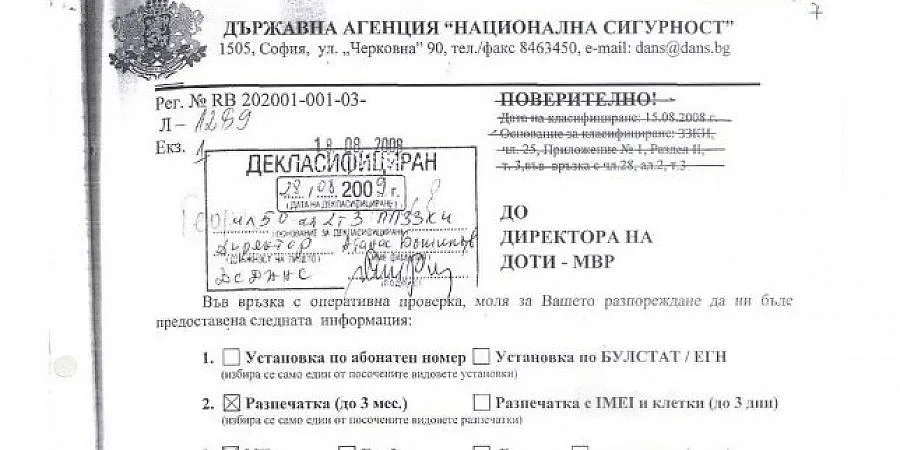 7
ДЪРЖАВНА АГЕНЦИЯ “НАЦИОНАЛНА СИГУРНОСТ”
1505, София, ул. „Черковна” 90, тел./факс 8463450, e-mail: dans@dans.bg
Рег. № RB 202001-001-03-
Л – 1289
Екз. 1
18.08.2008
ПОВЕРИТЕЛНО!
Дата на класифициране: 15.08.2008 г.
Основание за класифициране: ЗЗКИ,
чл. 25, Приложение № 1, Раздел II,
т. 3,във връзка с чл.28, ал.2, т.3
ДЕКЛАСИФИЦИРАН
28, 08 2009 г.
(ДАТА НА ДЕКЛАСИФИЦИРАНЕ)
чл 50 ал 2 т 3 ППЗЗКИ
(ОСНОВАНИЕ ЗА ДЕКЛАСИФИЦИРАНЕ)
Директор Атанас
(ДЛЪЖНОСТ НА ЛИЦЕТО)
(ПОДПИС)
ДО
ДИРЕКТОРА НА
ДОТИ - МВР
Във връзка с оперативна проверка, моля за Вашето разпореждане да ни бъде
предоставена следната информация:
1. Установка по абонатен номер Установка по БУЛСТАТ / ЕГН
(избира се само един от посочените видовете установки)
2. Разпечатка (до 3 мес.) Разпечатка с IMEI и клетки (до 3 дни)
(избира се само един от посочените видовете разпечатки)